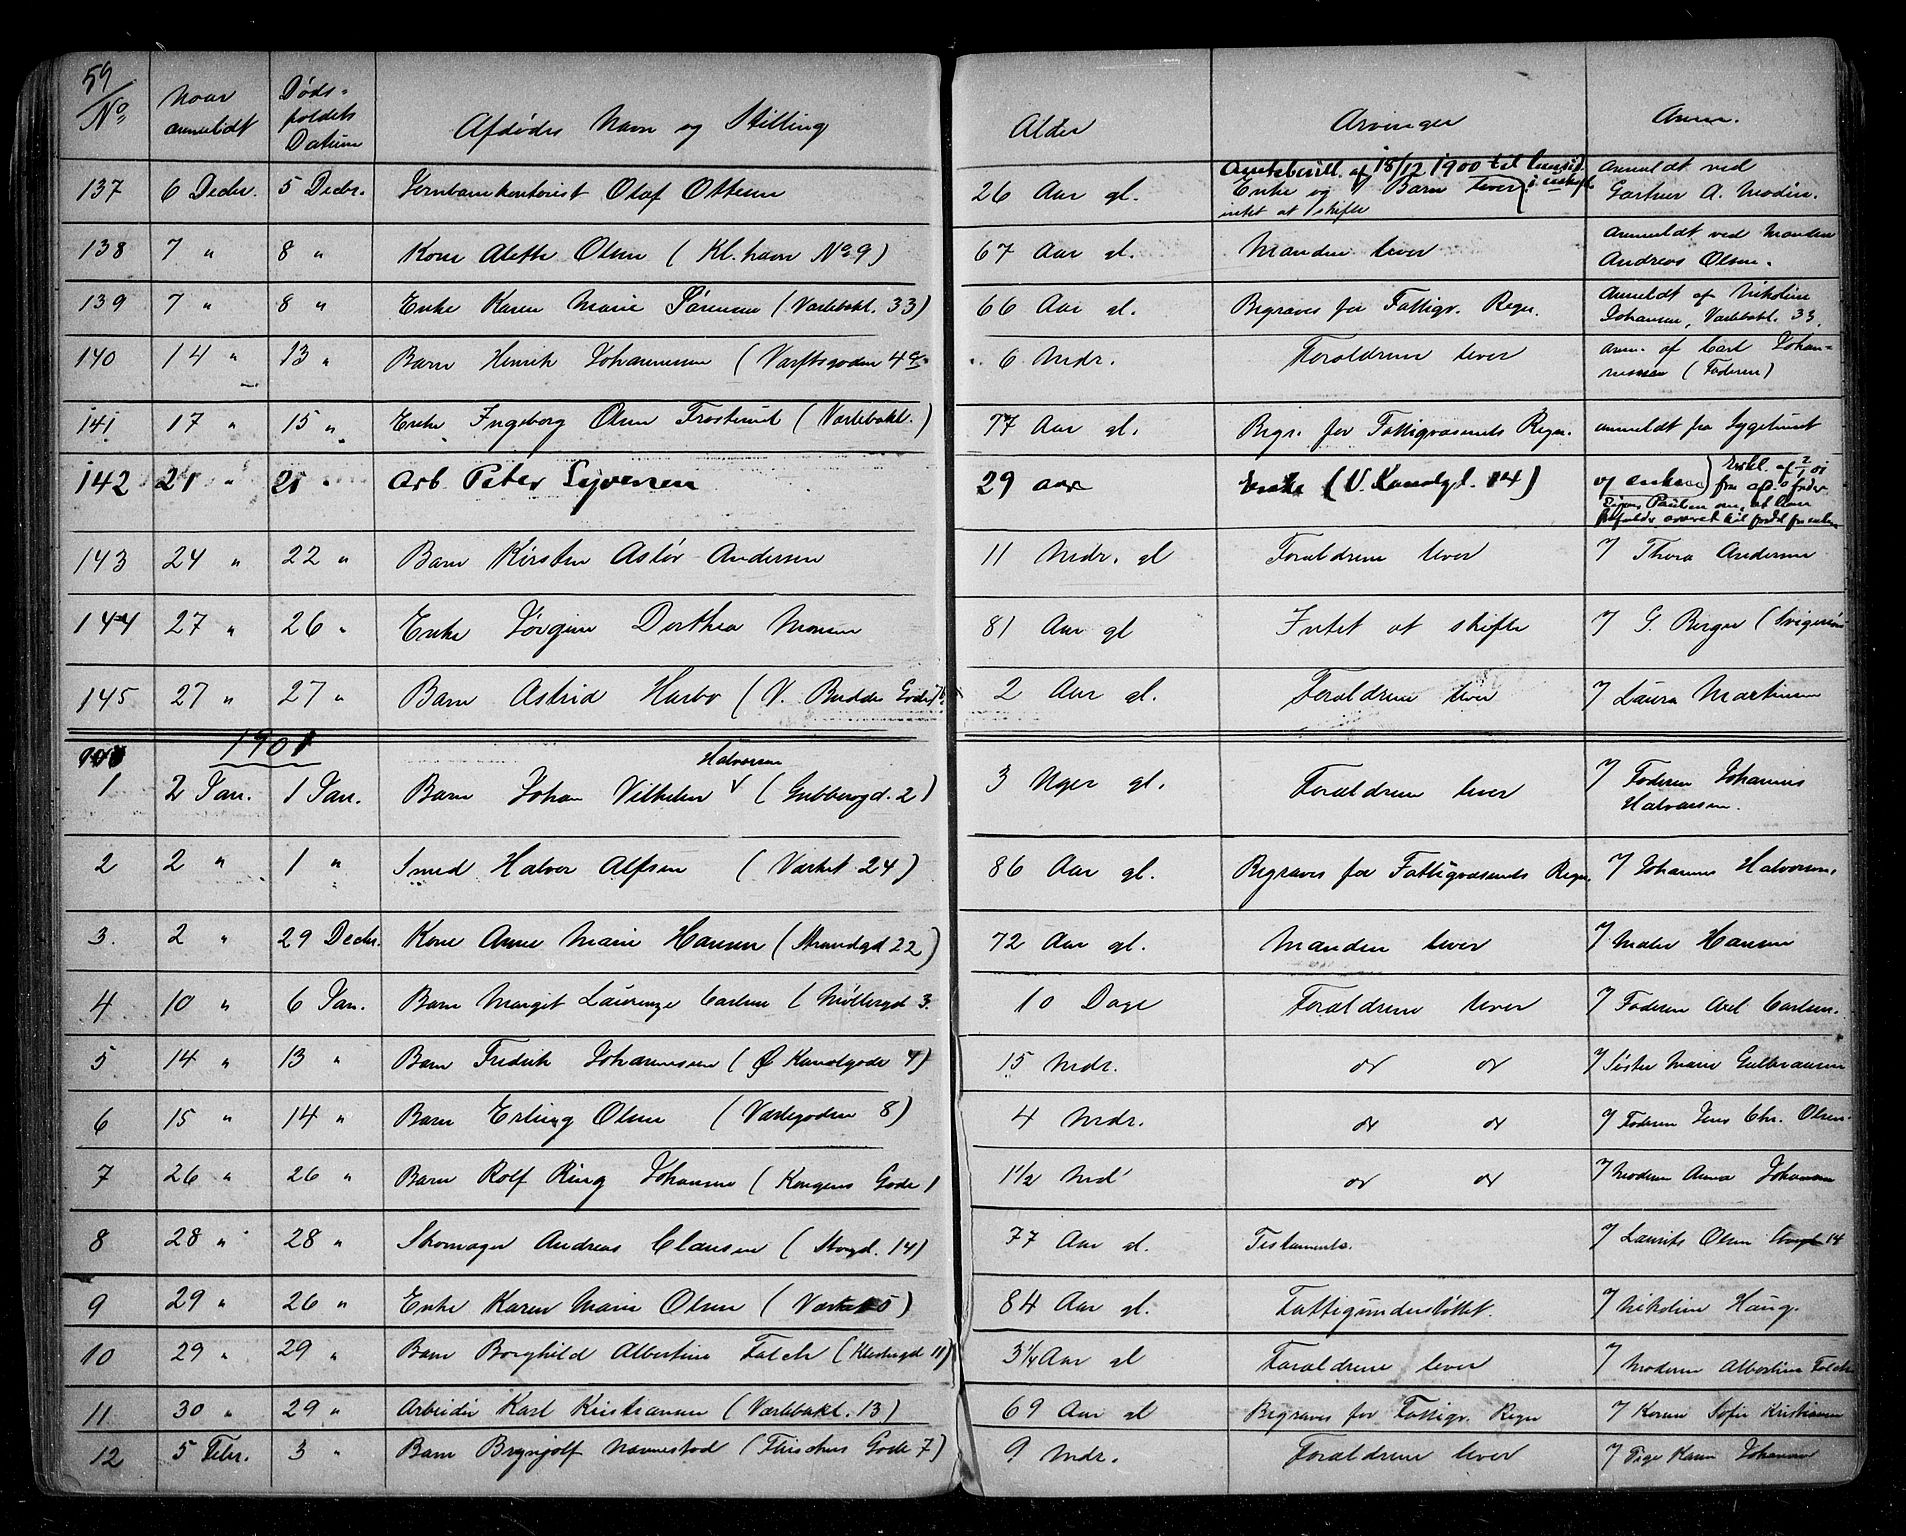 59
No
Naar anmeldt
Døds-faldets Datum
Afdødes Navn og Stilling
Alder
Arvinger
Anm.
137 6 Decbr. 5 Decbr. Jernbanekontorist Olaf Ottesen 26 Aar gl. Enke og Barn lever intet at skifte
af 18/12 1900 til
Anmeldt ved
Gartner A. Modin.
138 7 " 8 " Kone Alethe Olsen (Kl. havn No 9) 67 Aar gl. Manden lever
Anmeldt ved Manden
Andreas Olsen.
139 7 " 8 " Enke Karen Marie Sørensen (Værlebakk. 33) 66 Aar gl. Begraves for Fattigv. Regn.
Anmeldt af Nikoline
Johansen, Værlebakk. 33.
140 14 " 13 " Barn Henrik Johannessen (Værftsgaden 4 6 Mdr. Forældrene lever
anm. af Carl Johan-
nessen (Faderen)
141 17 " 15 " Enke Ingeborg Olsen (Værlebakk.) 77 Aar gl. Begr. for Fattigvæsenets Regn. anmeldt fra Sygehuset
142 21 " 21 " Arb. Peter Syversen 29 aar Enke (V. Kanalgd. 14)
og enken
Erkl. af 2/1 01
fra afd. fader
Paulsen om, at han
frafalder arvet til fordel for enken
143 24 " 22 " Barn Kirsten Astor Andersen 11 Mdr. gl Forældrene lever 7 Thora Andersen
144 27 " 26 " Enke Jørgine Dorthea Monsen 81 Aar gl Intet at skifte 7 G. Berger (Svigersøn
145 27 " 27 " Barn Astrid Harbo (V. Budde Gade 2 Aar gl. Forældrene lever 7 Laura Martinsen
1901
1 2 Jan. 1 Jan. Barn Johan Vilhelm Halvorsen (Gubberogd. 2) 3 Uger gl. Forældrene lever 7 Faderen Johannes
Halvorsen.
2 2 " 1 " Smed Halvor Alfsen (Værket 24) 86 Aar gl. Begraves for Fattigvæsenets Regn. 7 Johannes Halvorsen.
3. 2 " 29 Decbr. Kone Anne Marie Hansen (Strandgd 22) 72 Aar gl. Manden lever 7 Hansen
4 10 " 6 Jan. Barn Margit Laurenze Carlsen (Møllergd 3. 10 Dage Forældrene lever 7 Faderen Axel Carlsen.
5 14 " 13 " Barn Fredrik Johannessen (Ø Kanalgade 4) 15 Mdr. do do 7 Søster Marie Gulbransen
6 15 " 14 " Barn Erling Olsen (Værlegaden 8) 4 Mdr. do do 7 Faderen Jens Chr. Olsen.
7 26 " 26 " Barn Rolf Ring Johansen (Kongens Gade 1 1 1/2 Md do do 7 Moderen Anna Johansen
8 28 " 28 " Skomager Andreas Clausen (Storgd. 14) 77 Aar gl. Testamente. 7 Laurits Olsen Storgd 14
9 29 " 26 " Enke Karen Marie Olsen (Værket 5) 84 Aar gl. Fattigunderstøttet. 7 Nikoline Haug.
10 29 " 29 " Barn Borghild Albertine Falch (Klostergd 11) 3 1/4 Aar gl Forældrene lever 7 Moderen Albertine Falch
11 30 " 29 " Arbeider Karl Kristiansen (Værlebakk. 13) 69 Aar gl Begraves for Fattigv. Regn 7 Konen Sofie Kristiansen
12 5 Febr. 3 " Barn Brynjolf Navnestad (Thrischens Gade 7) 9 Mdr. Forældrene lever 7 Pige Karen Johansen